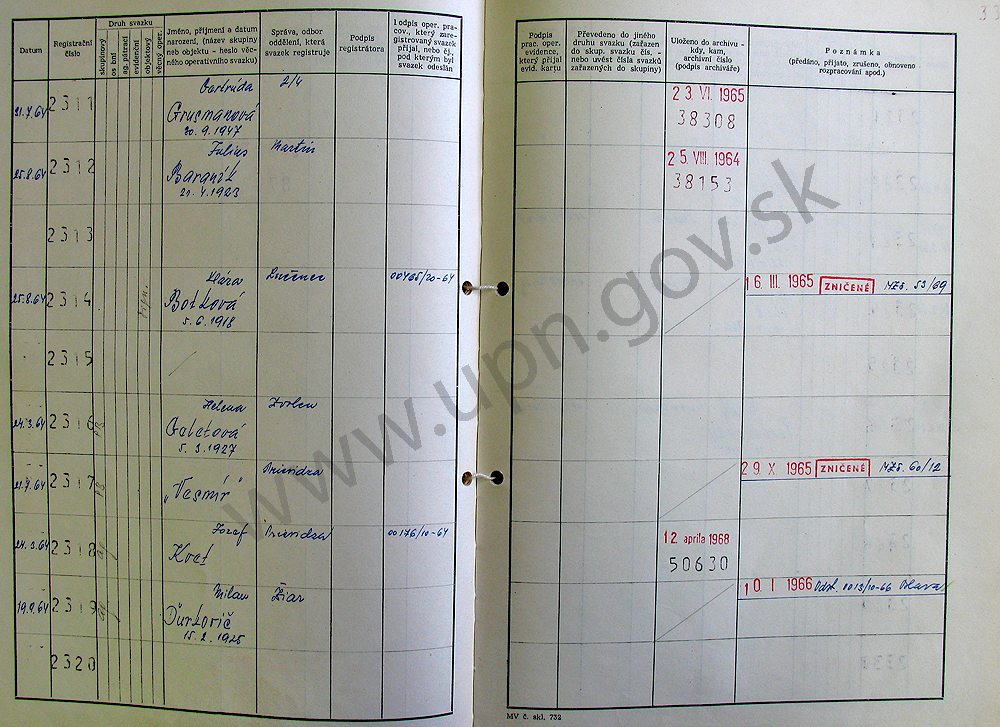 Datum
Registrační
číslo
Druh svazku
skupinový
os. bní
ag. pátrací
evidenční
objektový
věcný oper.
Jméno, příjmení a datum
narození, (název skupiny
neb objektu - heslo věc-
ného operativního svazku)
Správa, odbor
oddělení, která
svazek registruje
Podpis
registrátora
Podpis oper. pra-
cov., který zare-
gistrovaný svazek
přijal, nebo čj.,
pod kterým byl
svazek odeslán
Podpis
prac. oper.
evidence,
který přijal
evid. kartu
Převedeno do jiného
druhu svazku (zařazen
do skup. svazku čís. -
nebo uvést čísla svazků
zařazených do skupiny)
Uloženo do archivu -
kdy, kam,
archivní číslo
(podpis archiváře)
Poznámka
(předáno, přijato, zrušeno, obnoveno
rozpracování apod.)
21.7.64 2311 Gertrúda 2/4 23. VI. 1965
Grusmanová 38308
20.9.1947
25.8.64 2312 Július Martin 25. VIII. 1964
38153
21.4.1923
2313
25.8.64 2314 Lučenec 00465/20-64 16. III. 1965 ZNIČENÉ MZs. 53/69
Botková
5.6.1918
2315
24.3.64 2316 Helena Zvolen
Geletová
5.3.1927
21.7.64 2317 Prievidza 29 X 1965 ZNIČENÉ MZs. 60/12
„Vesmír"
24.3.64 2318 Jozef Prievidza 00176/10-64 12 apríla 1968
Kvet 50630
19.9.64 2319 Milan Žiar 10 I 1966 Odst. 0013/10-66 Orava
Ďurkovič
15.2.1925
2320
MV č. skl. 732
www.upn.gov.sk